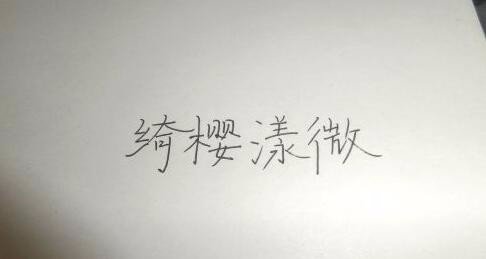 绮樱漾微